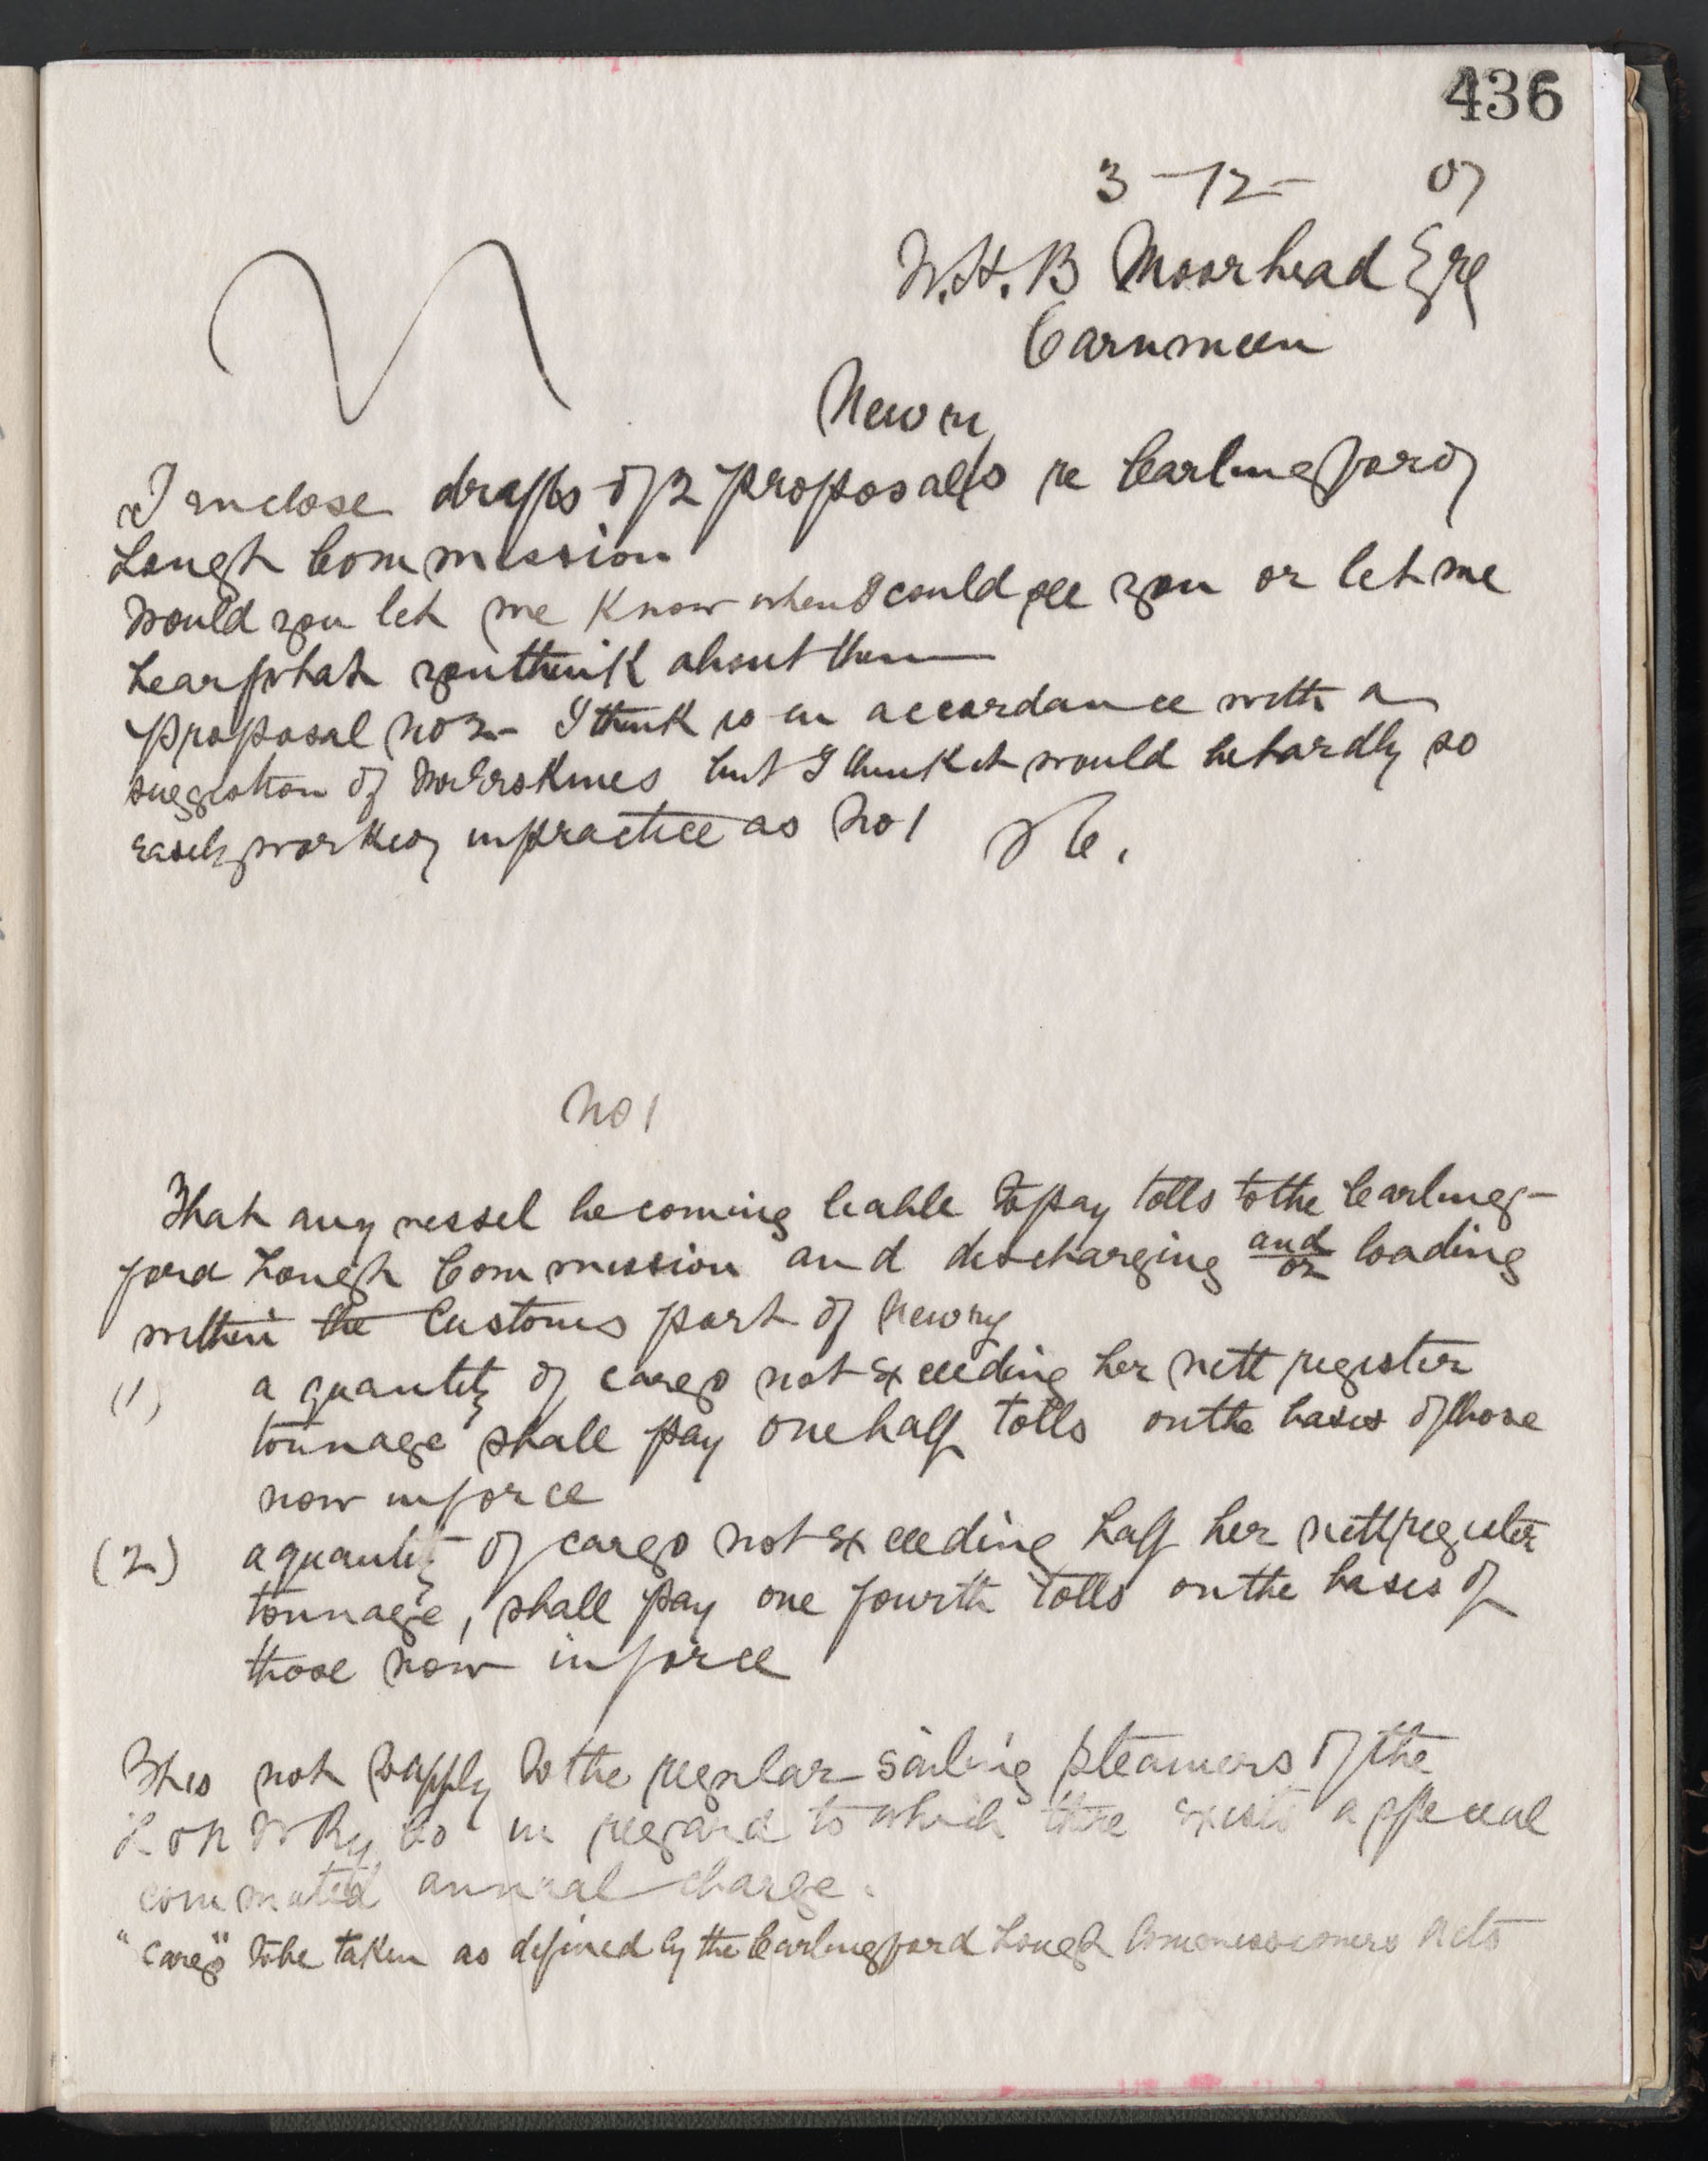 436
3-12- 07
W.H.B Moorhead Esq
Carnmeen
Newry
I enclose drafts of 2 proposals re Carlingford
Lough Commission
Would you let me know when I could see you or let me
hear what you think about them
Proposal No 2 - I think is in accordance with a
suggestion of Mr Erskines but I think it would be hardly so
easily worked in practice as No 1
No 1
That any vessel becoming liable to pay tolls to the Carling-
ford Lough Commission and discharging and/or loading
within the Customs port of Newry
(1) a quantity of cargo not exceeding her nett register
tonnage shall pay one half tolls on the basis of those
now in force
(2) a quantity of cargo not exceeding half her nett register
tonnage, shall pay one fourth tolls on the basis of
those now in force
This not to apply to the regular sailing steamers of the
L & N W Ry Co in regard to which there exists a special
commuted annual charge.
"Cargo" to be taken as defined by the Carlingford Lough Commissioners Acts